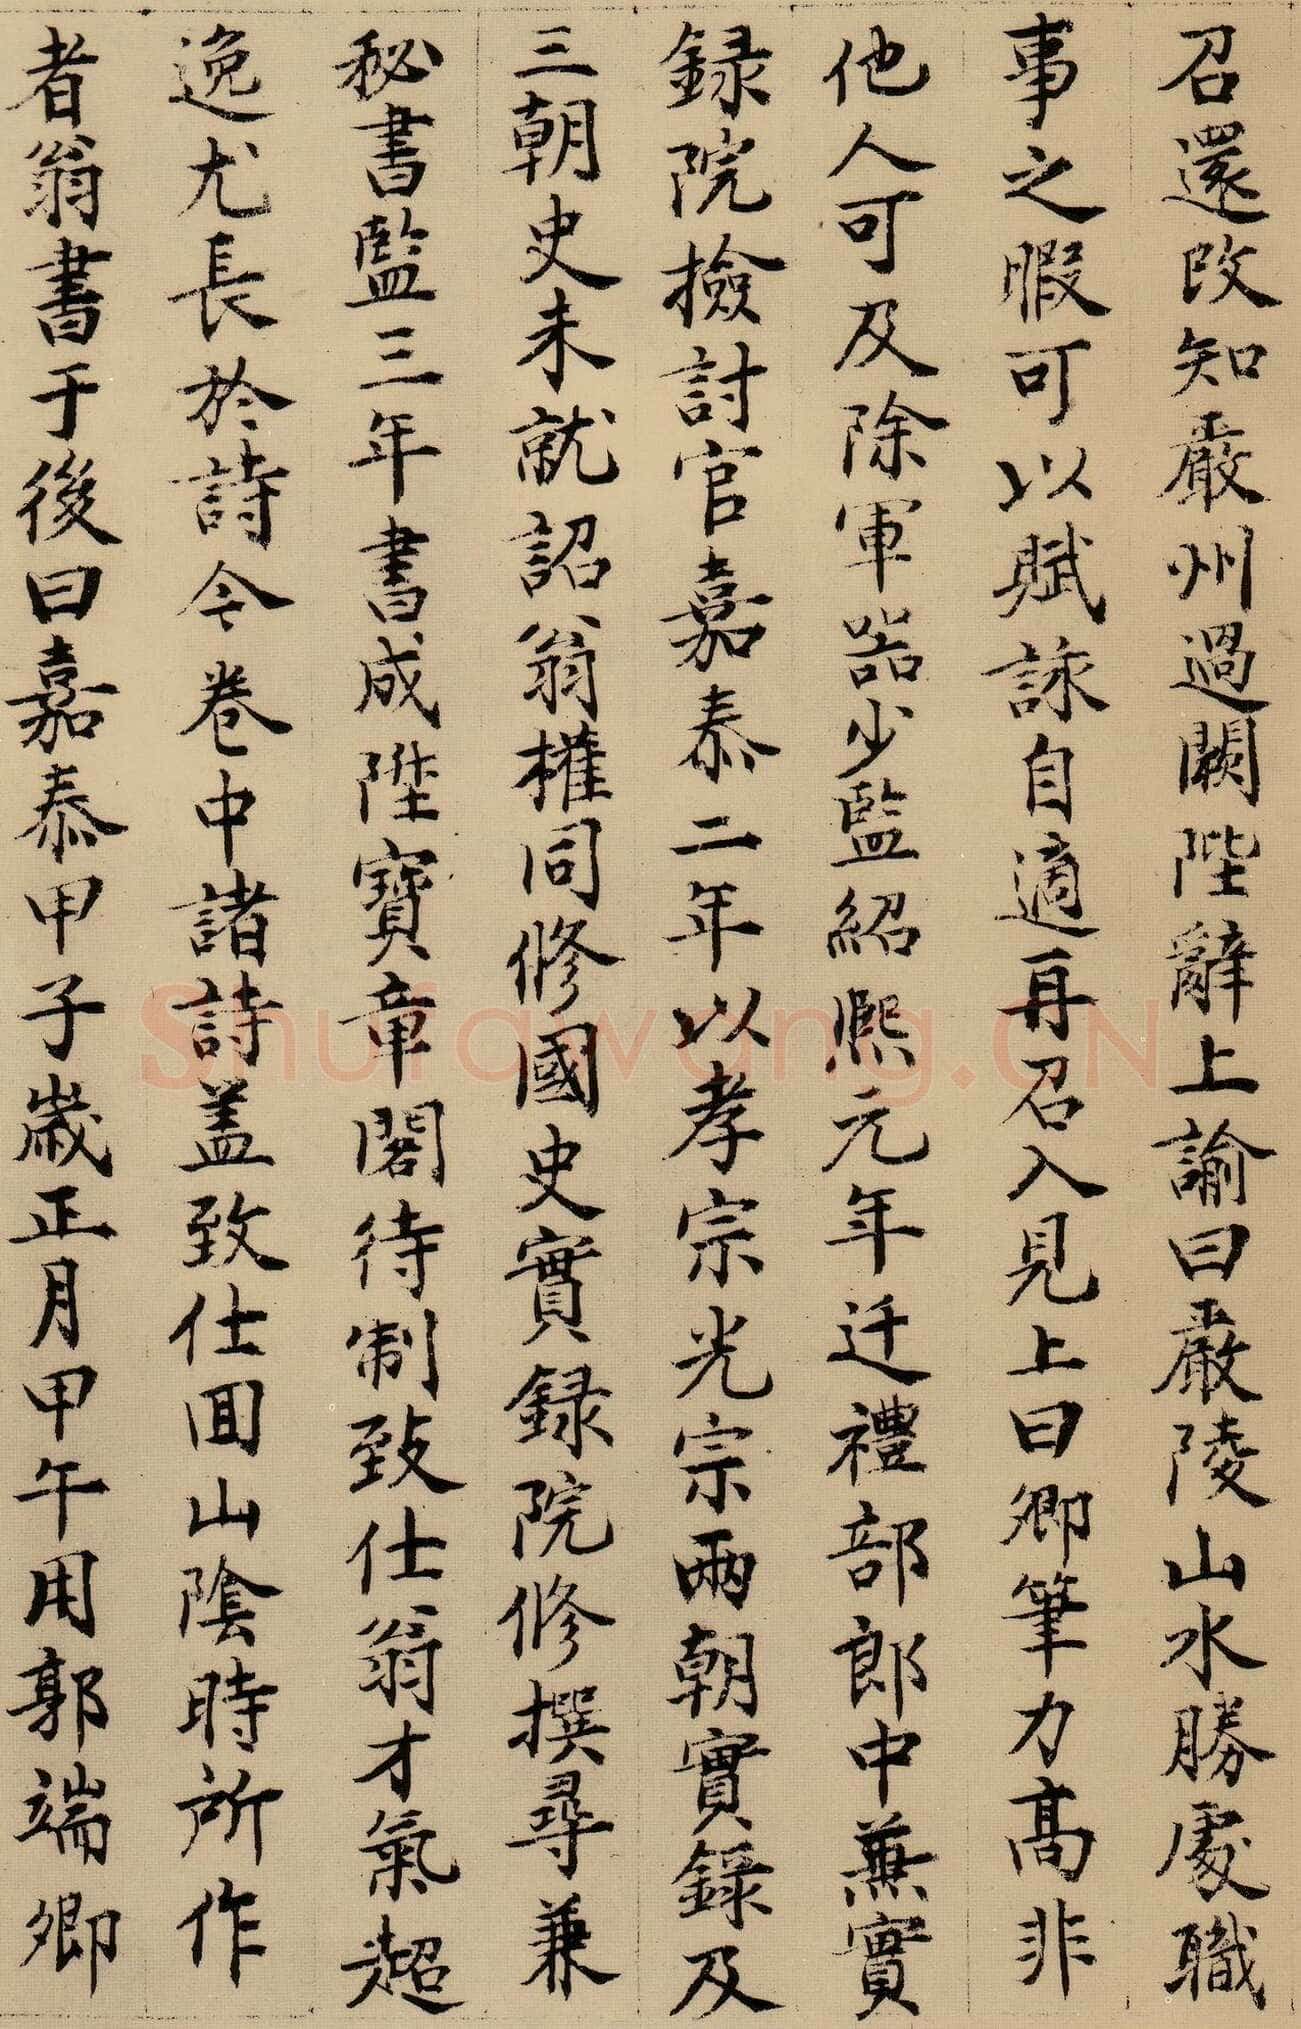 召還改知嚴州過闕陛辭上諭曰嚴陵山水勝處職
事之暇可以賦詠自適再召入見上曰卿筆力高非
他人可及除軍器少監紹熙元年迁禮部郎中兼實
録院撿討官嘉泰二年以孝宗光宗兩朝實録及
三朝史未就詔翁權同修國史實録院修撰尋兼
秘書監三年書成陞寶章閣待制致仕翁才氣超
逸尤長於詩今卷中諸詩盖致仕囬山陰時所作
者翁書于後曰嘉泰甲子歲正月甲午用郭端卿
Shufawang.CN